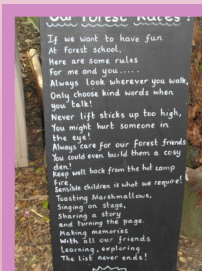 Our Forest Rules!
If we want to have fun
At Forest school,
Here are some rules
For me and you.....
Always look wherever you walk,
Only choose kind words when
you talk!
Never lift sticks up too high,
You might hurt someone in
the eye!
Always care for our forest friends
You could even build them a cosy
den!
Keep well back from the hot camp
Fire,
Sensible children is what we require!
Toasting Marshmallows,
Singing on stage,
Sharing a story
and turning the page.
Making memories
With all our friends
Learning, exploring
The list never ends!